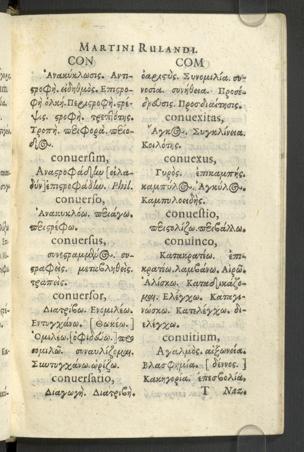 MARTINI RULANDI.
CON
Ἀνακύκλωσις. Ἀντι-
στροφή. εἱληθμός. Ἐπιστρο-
φὴ ὁλκή. Περιστροφή. στρέ-
ψις. στροφή.
Τροπή. περιφορά.
conuersim,
Ἀναστροφάδην
ἐπιστροφάδην. Phil.
conuerso,
Ἀνακυκλόω. περιάγω.
περιστρέφω.
conuersus,
συνεστραμμένος. συ-
στραφείς. μεταβληθείς.
τραπείς.
conuersor,
Διατρίβω. Ἐνομιλέω.
Ἐντυγχάνω.
Ὁμιλέω.
συναυλίζομαι.
Συντυγχάνω.
conuersatio,
Διαγωγή. Διατριβή.
COM
Συνομιλία. συ-
νουσία. συνήθεια. Προσέ-
Προσδιαίτησις.
conuexitas,
Ἄγκος. Συγκλίνεια.
Κοιλότης.
conuexus,
Γυρός. ἐπικαμπής.
καμπύλος. Ἀγκύλος.
Καμπυλοειδής.
conuestio,
περιστολίζω. περιβάλλω.
conuinco,
Κατακρατέω. ἐπι-
κρατέω. λαμβάνω. Αἱρῶ.
Ἁλίσκω. Καταδικάζο-
μαι. Ἐλέγχω. Καταγι-
νώσκω. Κατελέγχω. δι-
ελέγχω.
conuitium,
Βλασφημία. [δέννος.]
Κακηγορία. ἐπεσβολία.
T Naz.